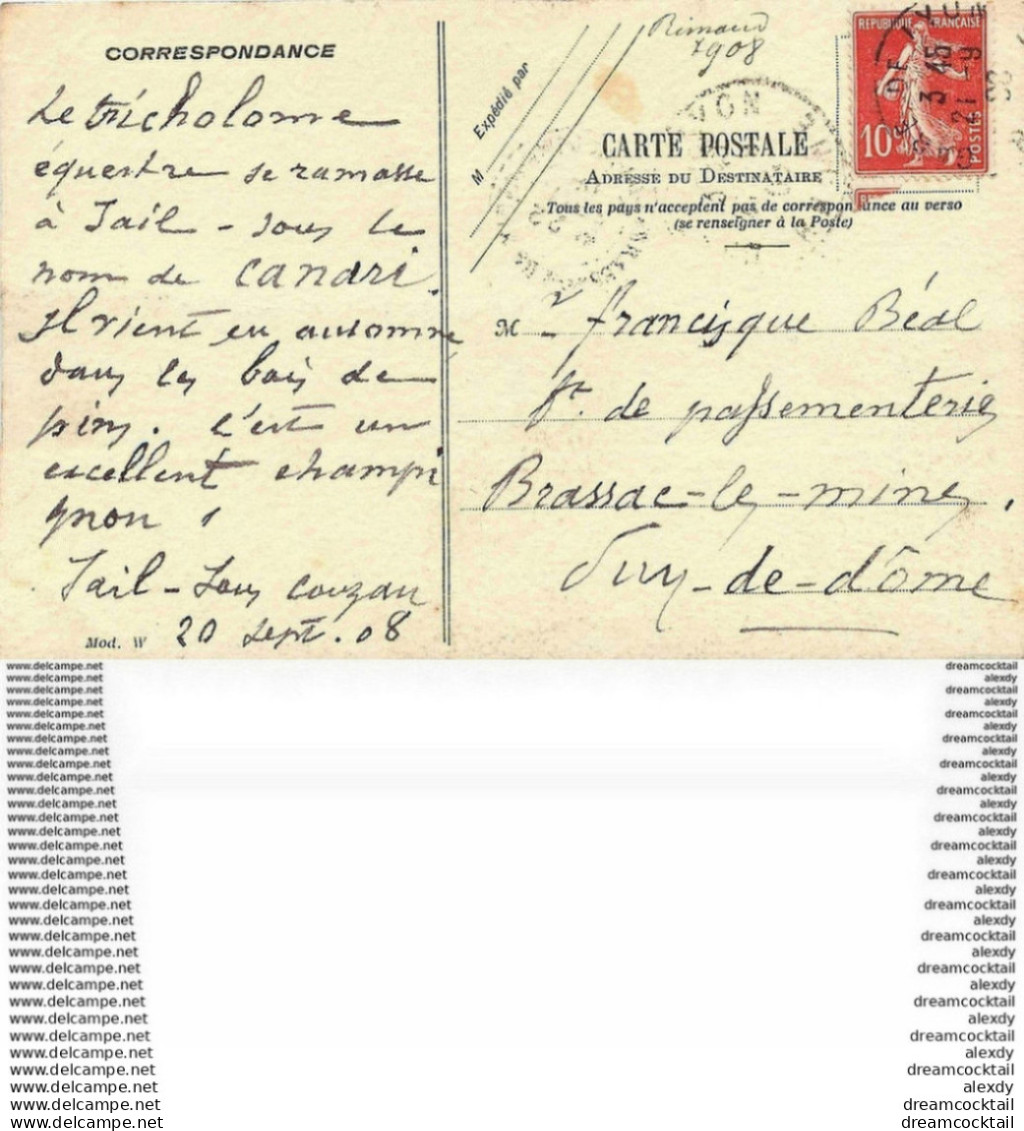 CORRESPONDANCE
Le tricholome
équestre se ramasse
à Sail-sous le
nom de canari.
Il vient en automne
dans les bois de
pins. C'est un
excellent champi
gnon !
Sail-Sous Couzan
20 sept. 08
Mod. W
Rimaud
1908
Expédié par
M
CARTE POSTALE
ADRESSE DU DESTINATAIRE
Tous les pays n'acceptent pas de correspondance au verso
(se renseigner à la Poste)
REPUBLIQUE FRANÇAISE
10c
POSTES
3 45
21 -9
08
M r Francisque Béal
ft. de passementeries
Brassac-les-mines.
Puy-de-dôme
www.delcampe.net
www.delcampe.net
www.delcampe.net
www.delcampe.net
www.delcampe.net
www.delcampe.net
www.delcampe.net
www.delcampe.net
www.delcampe.net
www.delcampe.net
www.delcampe.net
www.delcampe.net
www.delcampe.net
www.delcampe.net
www.delcampe.net
www.delcampe.net
www.delcampe.net
www.delcampe.net
www.delcampe.net
www.delcampe.net
www.delcampe.net
www.delcampe.net
www.delcampe.net
www.delcampe.net
www.delcampe.net
www.delcampe.net
www.delcampe.net
www.delcampe.net
www.delcampe.net
www.delcampe.net
www.delcampe.net
dreamcocktail
alexdy
dreamcocktail
alexdy
dreamcocktail
alexdy
dreamcocktail
alexdy
dreamcocktail
alexdy
dreamcocktail
alexdy
dreamcocktail
alexdy
dreamcocktail
alexdy
dreamcocktail
alexdy
dreamcocktail
alexdy
dreamcocktail
alexdy
dreamcocktail
alexdy
dreamcocktail
alexdy
dreamcocktail
alexdy
dreamcocktail
alexdy
dreamcocktail
alexdy
dreamcocktail
alexdy
dreamcocktail